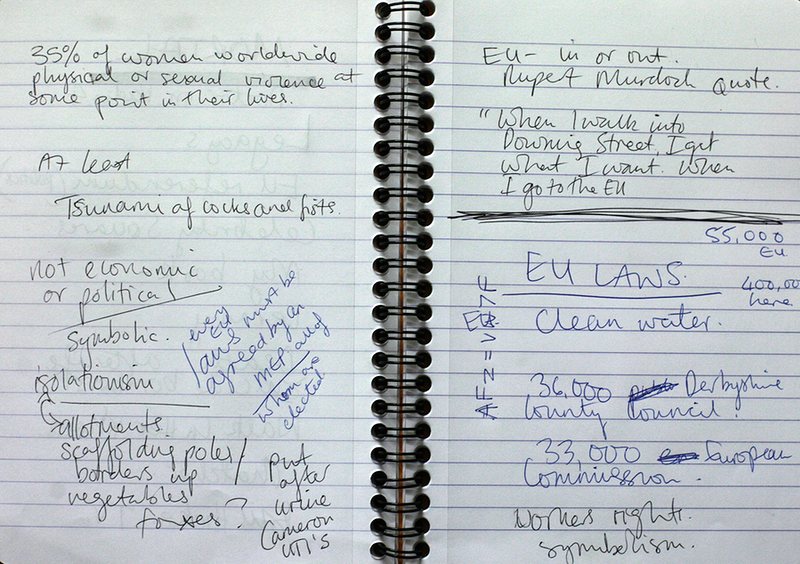 35% of women worldwide
physical or sexual violence at
some point in their lives.
At least
Tsunami of cocks and fists.
not economic
or political
symbolic.
isolationism
allotments.
scaffolding poles/
borders up
vegetables
foxes?
every
EU
laws must be
agreed by an
MEP all of
whom are
elected.
put
after
urine
Cameron
UTI's
EU - in or out.
Rupert Murdoch quote.
"When I walk into
Downing Street, I get
what I want. When
I go to the EU
55,000
EU.
EU LAWS.
400,00
here.
EU
Clean water.
36,000 Derbyshire
County Council.
33,000 European
Commission.
workers rights.
symbolism.